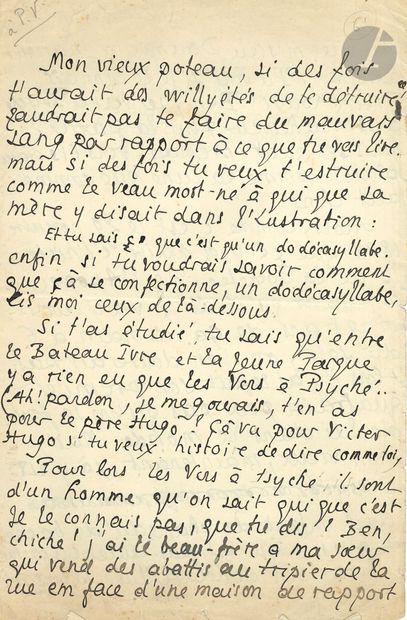 à P.V.
Mon vieux poteau, si des fois
t'aurait des willyétés de te détruire,
faudrait pas te faire du mauvais
sang par rapport à ce que tu vas lire.
mais si des fois tu veux t'estruire
comme le veau mort-né à qui que sa
mère y disait dans l'Lustration :
Et tu sais que c'est qu'un dodécasyllabe.
enfin si tu voudrais savoir comment
que çà se confectionne, un dodécasyllabe,
lis moi ceux de là-dessous.
Si t'as étudié, tu sais qu'entre
le Bateau Ivre et la Jeune Parque
y a rien eu que les Vers à Psyché..
(Ah! pardon, je me gourais, t'en as
pour le père Hugo? Çà va pour Victer
Hugo si tu veux histoire de dire comme toi,
Pour lors les Vers à Psyché il sont
d'un homme qu'on sait qui que c'est
Je le connais pas, que tu dis! Ben,
chiche! j'ai le beau-frère à ma sœur
qui vend des abattis au tripier de la
rue en face d'une maison de rapport